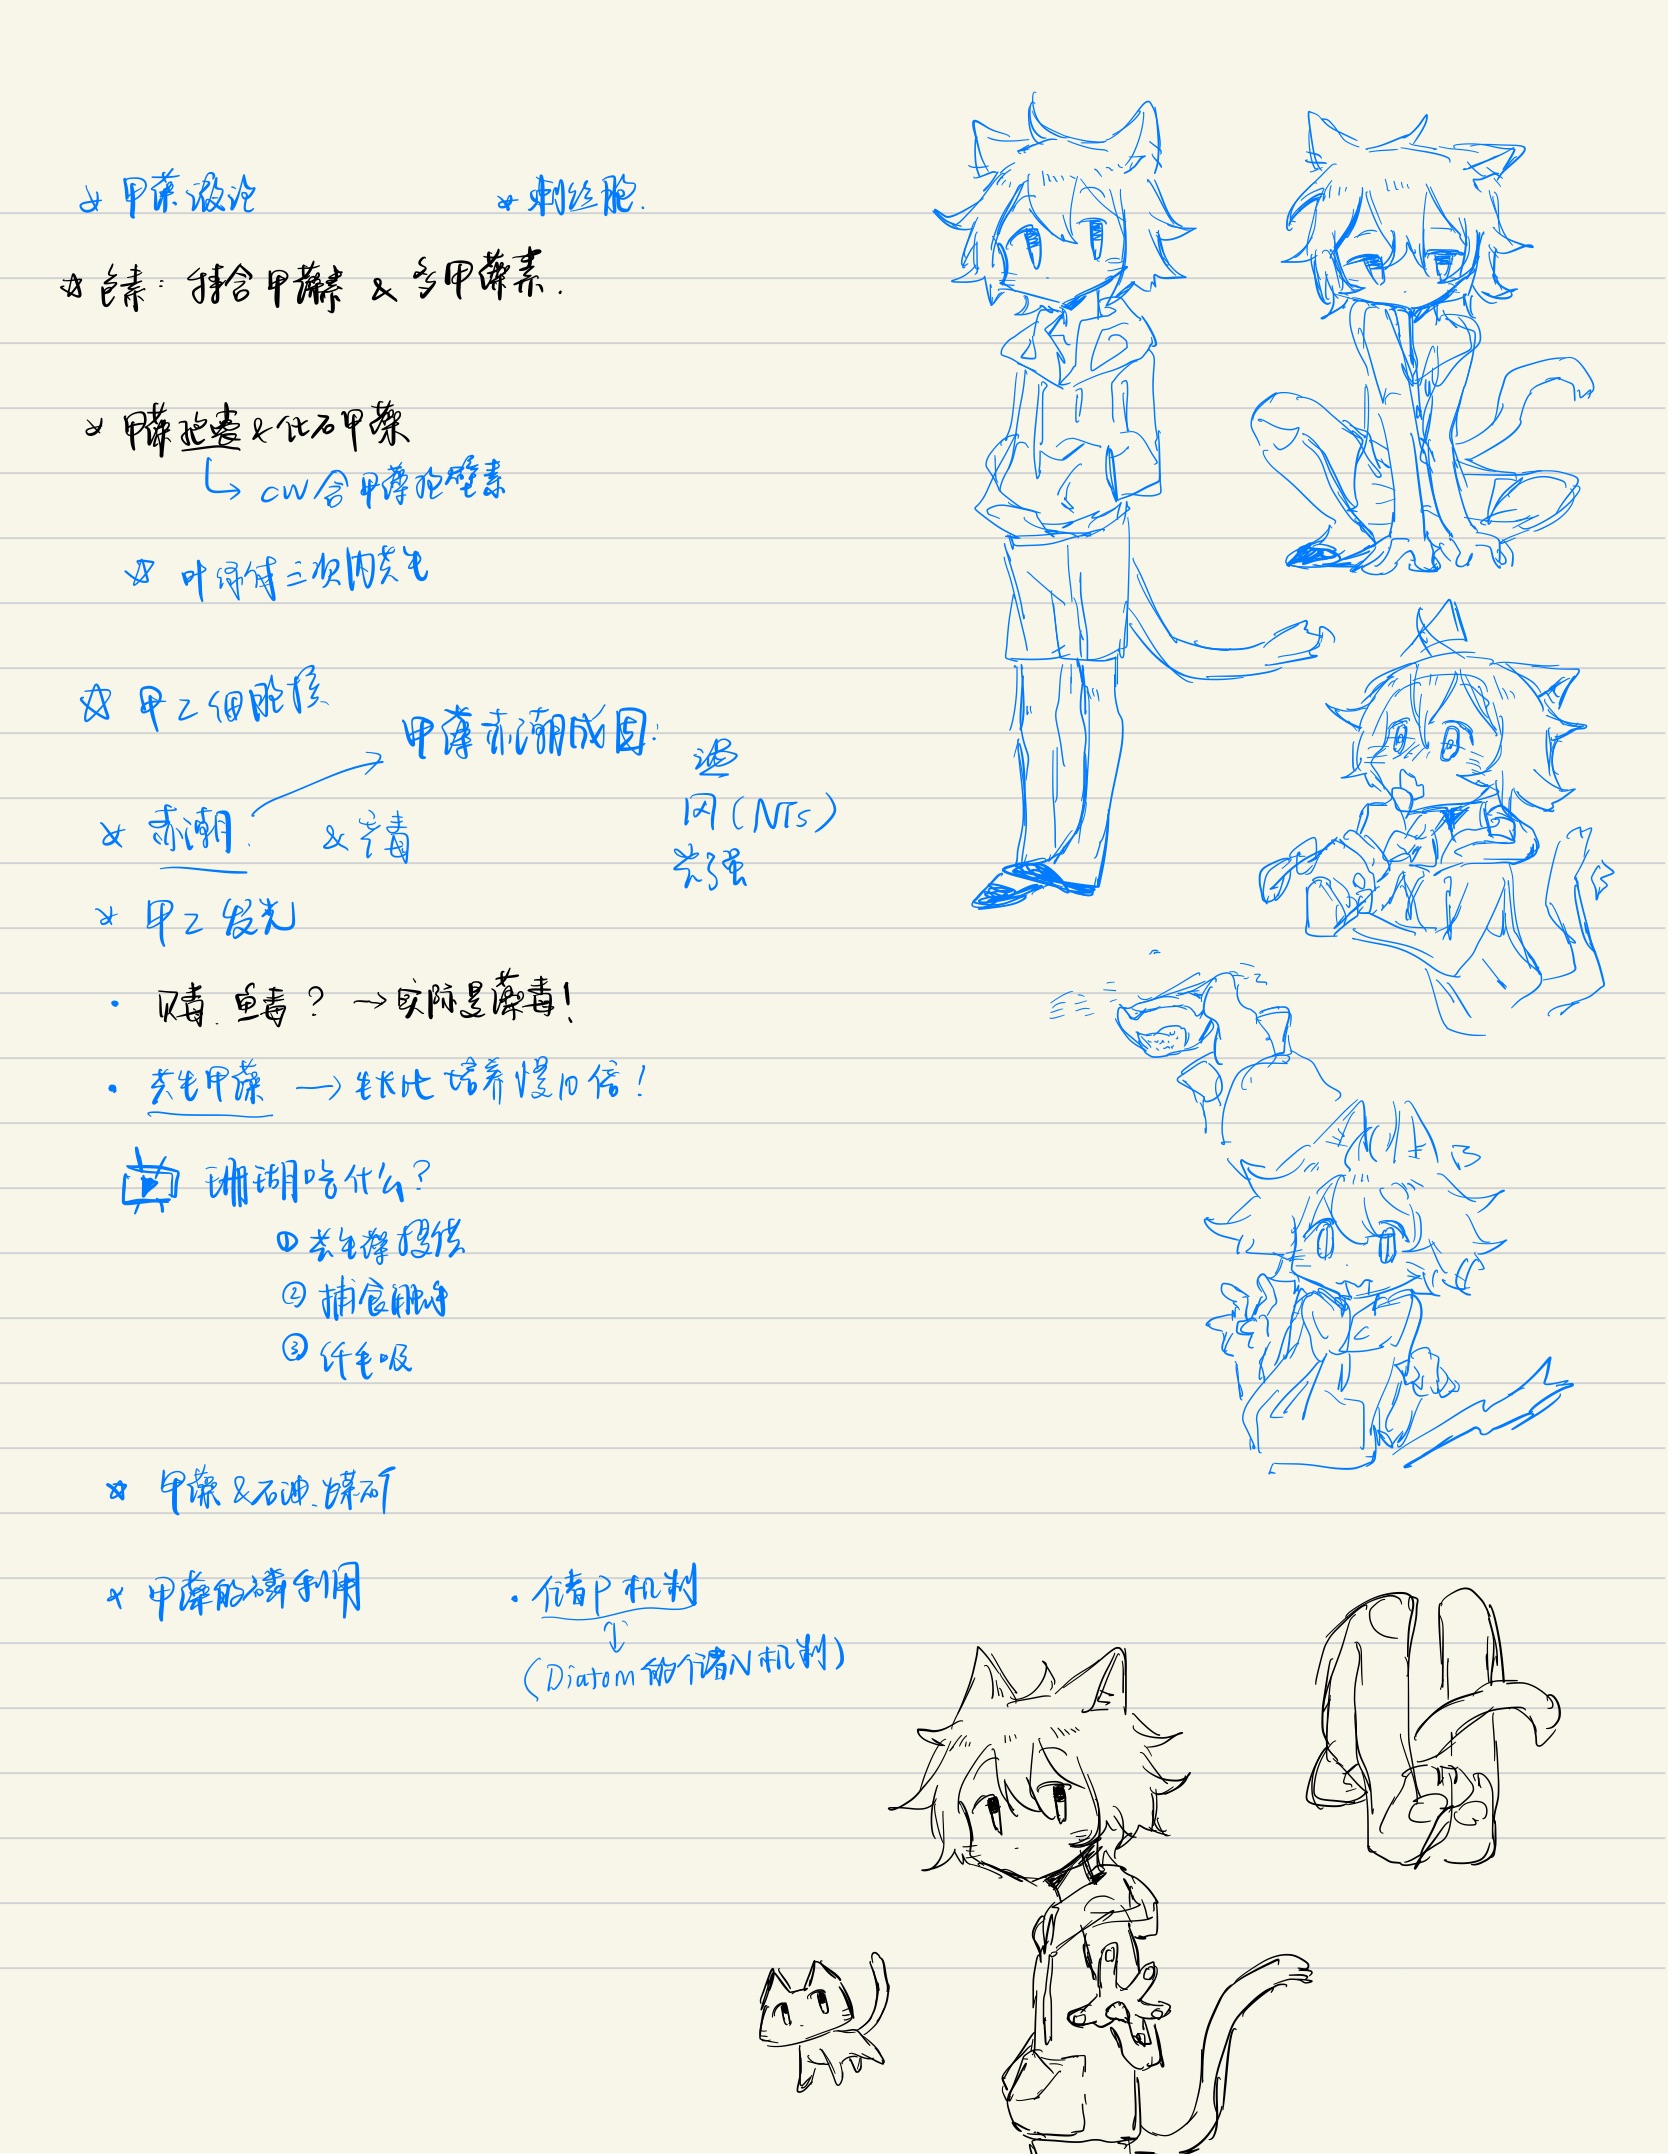 甲藻液泡
刺丝胞.
色素: 特含甲藻素 & 多甲藻素.
甲藻孢囊 & 化石甲藻
CW含甲藻孢壁素
叶绿体三次内共生
甲乙细胞核
甲藻赤潮成因:
温
风(NTs)
光强
赤潮. & 产毒
甲乙发光
贝毒、鱼毒? → 实际是藻毒!
共生甲藻 → 生长比培养慢10倍!
珊瑚吃什么?
① 共生藻提供
② 捕食触手
③ 纤毛吸
甲藻&石油、煤矿
甲藻的磷利用
·储P机制
(Diatom的储N机制)